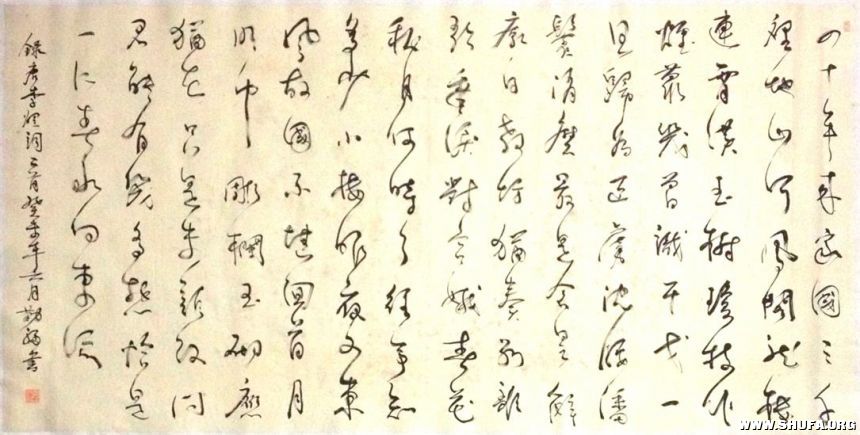 四十年来家國三千
里地山河鳳閣龍樓
連霄漢玉樹瓊枝作
煙蘿幾曾識干戈一
旦歸為臣虜沈腰潘
鬢消磨最是倉皇辭
廟日教坊猶奏別離
歌垂淚對宮娥春花
秋月何時了往事知
多少小樓昨夜又東
風故國不堪回首月
明中雕欄玉砌應
猶在只是朱顏改問
君能有幾多愁恰是
一江春水向東流
錄唐李煜詞二首癸未年六月書
WWW.SHUFA.ORG